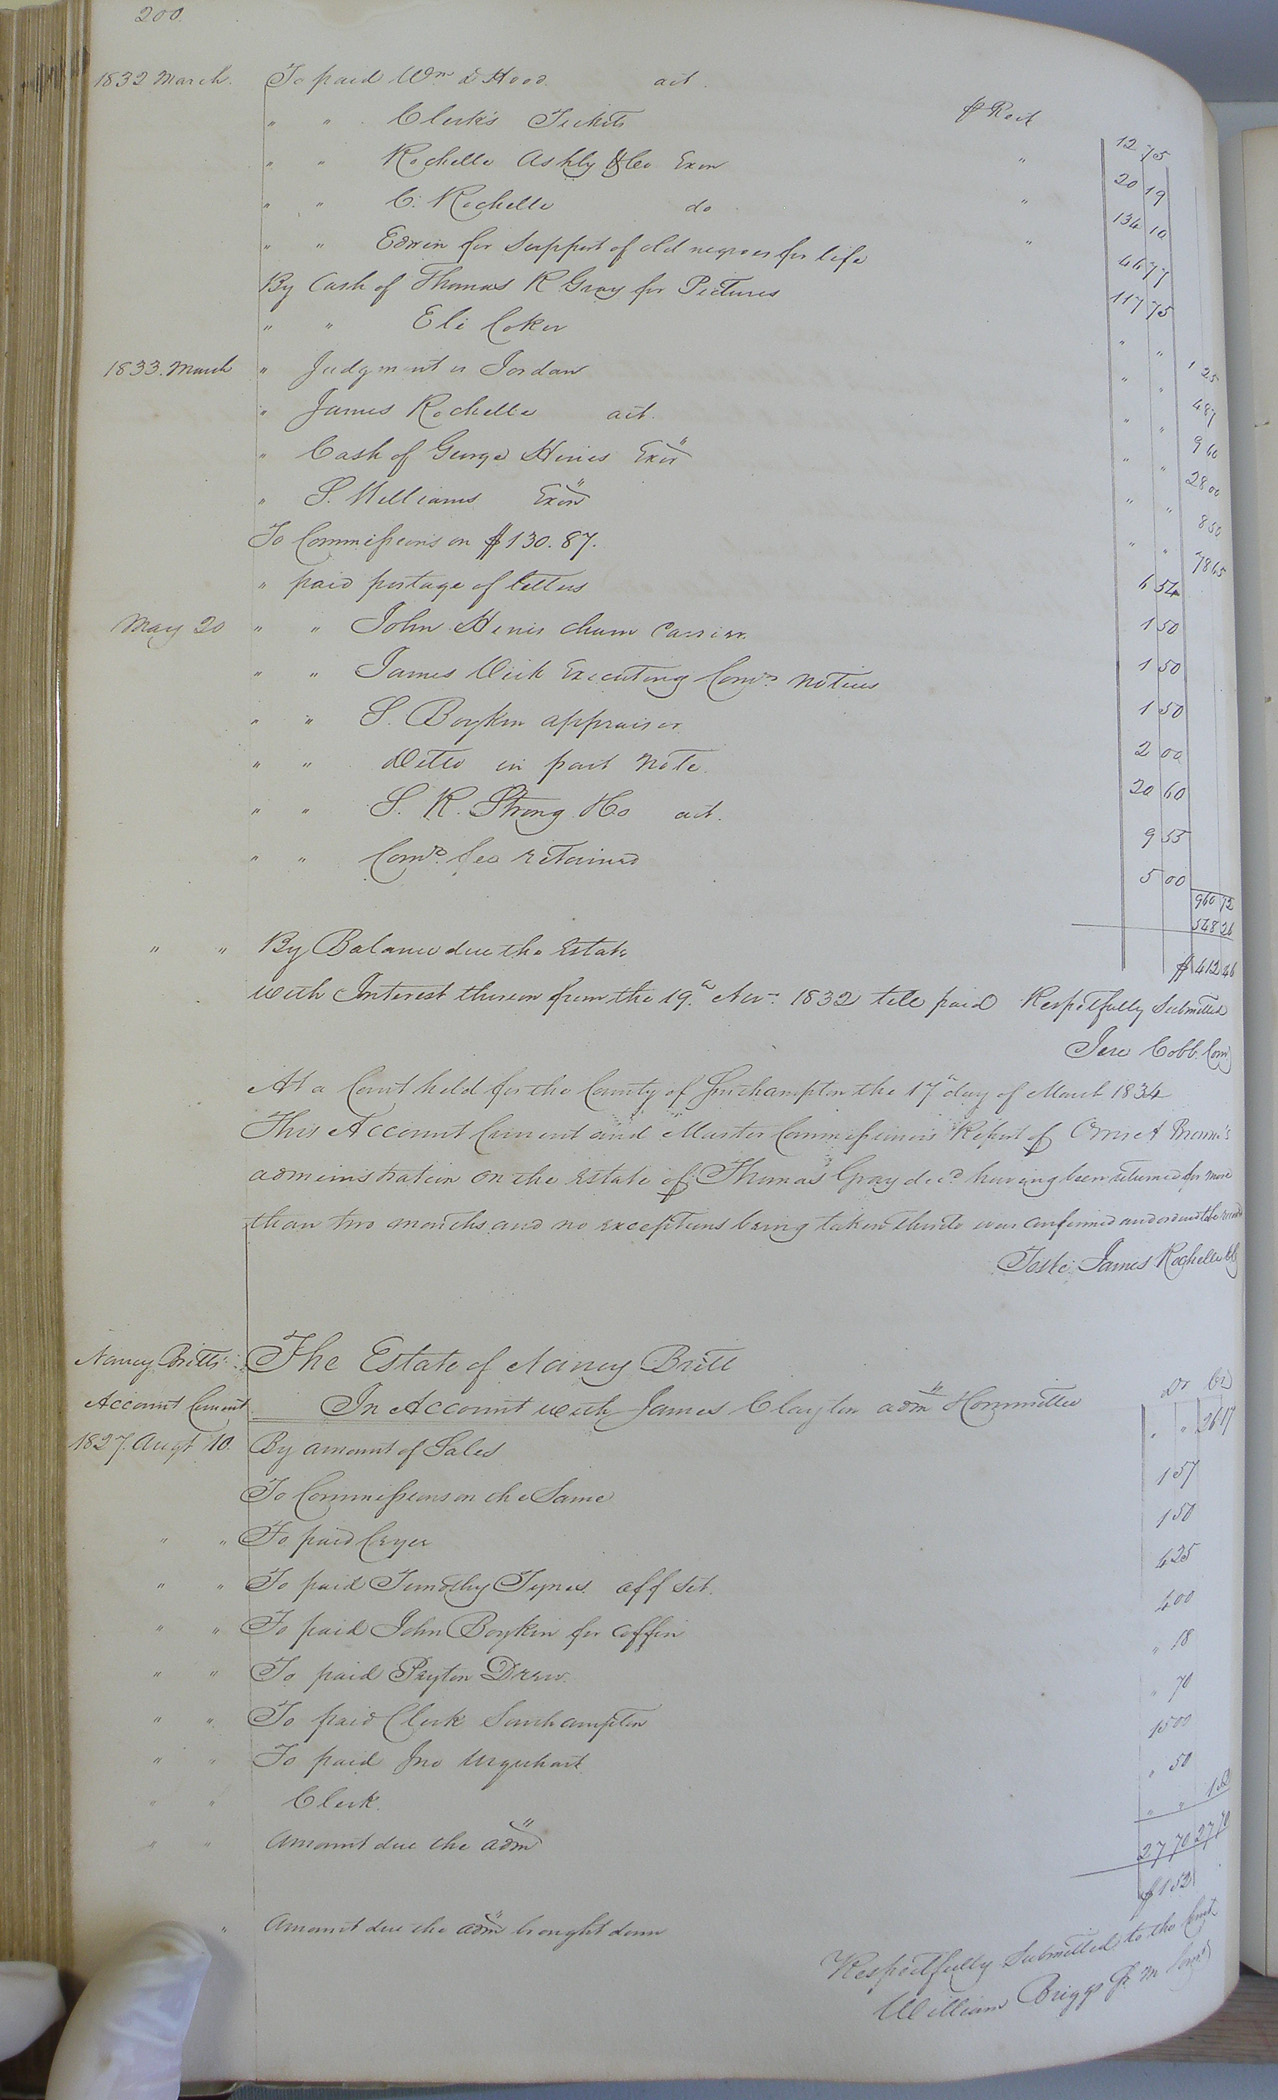 200
1832 March. To paid Wm D Hood act. ₱ Rect 12 75
" " Clerk's Tickets " 20 19
" " Rochelle Ashby & Co Exon " 134 10
" " C. Rochelle do " 46 77
" " Edwin for Support of old negroes for life 117 75
By Cash of Thomas R Gray for Pictures " " 1 25
" " Eli Coker " " 4 87
1833. March " Judgment vs Jordan " " 9 60
" James Rochelle act. " " 28 00
" Cash of George Hines Exor " " 8 50
" S. Williams Exon " " 78 65
To Commissions on $130.87. 6 54
" paid postage of letters 1 50
May 20 " " John Hines chain Carrier 1 50
" " James Vick Executing Comrs Notices 1 50
" " S. Boykin appraiser 2 00
" " Ditto in part Note. 20 60
" " S. K. Strong act. 9 55
" " Comrs fee retained 5 00
960 72
548 26
" " By Balance due the Estate $ 412 46
with Interest thereon from the 19th Nov. 1832 till paid Respetfully Submitted
Jere Cobb. Comr
At a Court held for the County of Southampton the 17th day of March 1834
This Account Current and Master Commissioners Report of Orris A Browne's
administration on the Estate of Thomas Gray decd having been returned for more
than two months and no exceptions being taken thereto was confirmed and ordered to be record
Teste. James Rochelle Clk
Nancy Britts The Estate of Nancy Britt
Account Current In Account with James Clayton adm Dr Cr
1827. Augt 10. By amount of Sales " " 26 17
To Commissions on the Same 1 57
" " To paid Cryer 1 50
" " To paid Timothy Tynes off Set. 4 25
" " To paid John Boykin for Coffin 4 00
" " To paid Peyton Drew. " 18
" " To paid Clerk Southampton " 70
" " To paid Jno Urquhart 15 00
" " Clerk. " 50
" " Amount due the adm " " 1 53
27 70 27 70
" Amount due the adm brought down $ 1 52
Respetfully Submitted to the Court
William Briggs